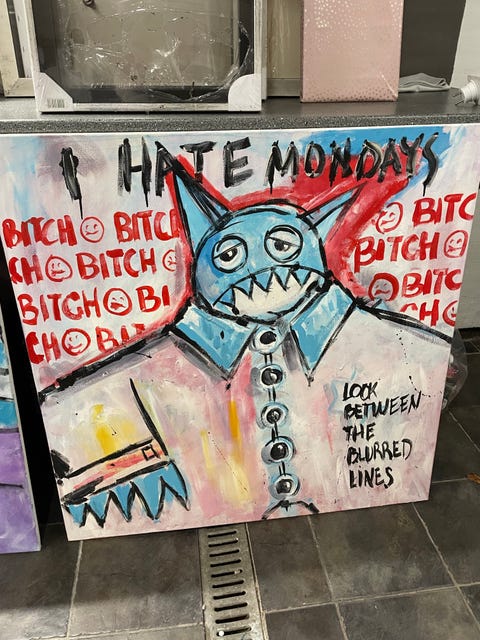 I HATE MONDAYS
BITCH BITC
CH BITCH
BITCH BI
CH BIT
BITC
BITCH
BITC
CH
LOOK
BETWEEN
THE
BLURRED
LINES